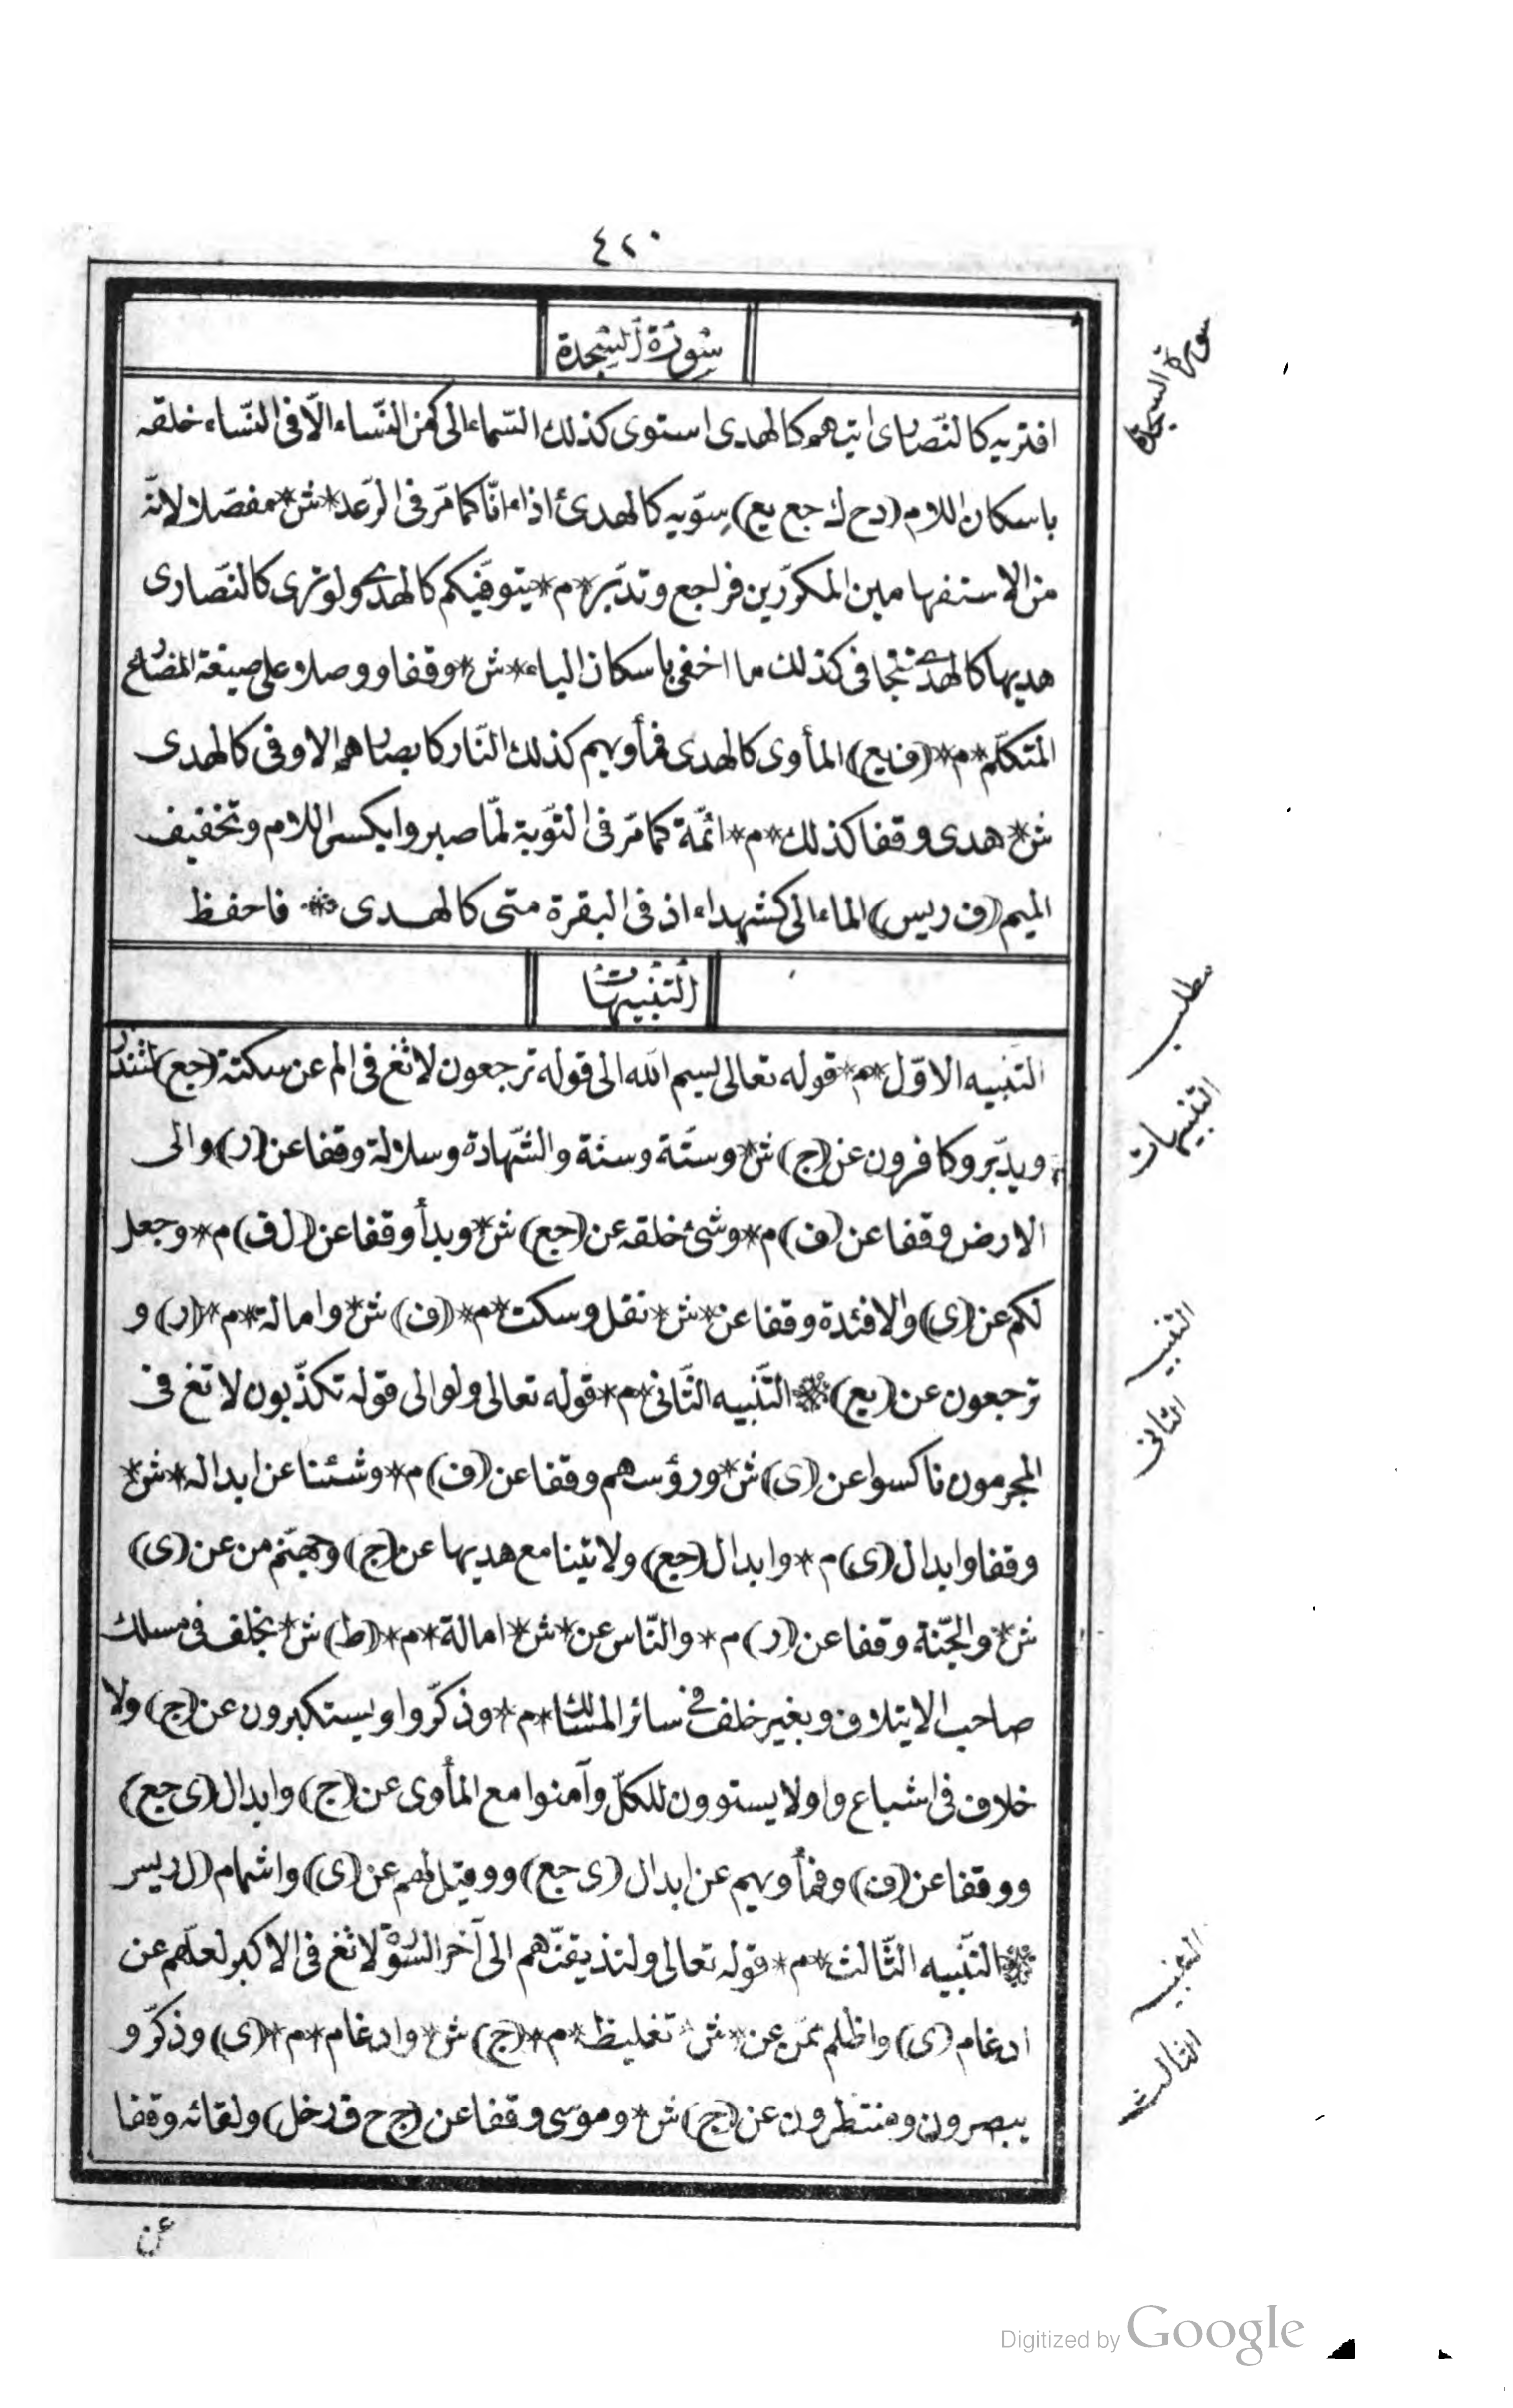 ٤٢٠
سورة السجدة
سورة السجدة
افتريه كالنصارى اتيهم كالهدى استوى كذلك السماء الى كمن النساء الّا فى النساء خلقه
باسكان اللام (دح ك جع يع) سوّيه كالهدى ئ اذا ءانّا كما مّر فى الرّعد * ش * مفصّلا لانّه
من الاستفهامين المكرّرين فراجع وتدبّر * م * يتوفّيكم كالهدى ولو ترى كالنصارى
هديها كالهدى تتجافى كذلك ما اخفى باسكان الياء * ش * وقفا ووصلا على صيغة المضارع
المتكلّم * م * (ف يع) المأوى كالهدى فمأويهم كذلك النّار كابصارهم الاوفى كالهدى
ش * هدى وقفا كذلك * م * ائمّة كما مّر فى التّوبة لمّا صبروا بكسر اللام وتخفيف
الميم (ف ريس) الماء الى كشهداء اذ فى البقرة متى كالهدى * فاحفظ
التنبيهات
مطلب
التنبيهات
التنبيه الاوّل * م * قوله تعالى بسم الله الى قوله ترجعون لا تغ فى الم عن سكتة (جع) لتنذر
ويدبّر وكافرون عن (ج) ش * وستّة وسنة والشّهادة وسلالة وقفا عن (ر) والى
الارض وقفا عن (ف) م * وشئ خلقه عن (جع) ش * وبدأ وقفا عن (ل ف) م * وجعل
لكم عن (ى) والافئدة وقفا عن * ش * نقل وسكت * م * (ف) ش * وامالة * م * (ر) و
ترجعون عن (يع) * التّنبيه الثّانى * م * قوله تعالى ولو الى قوله تكذّبون لا تغ فى
التنبيه
الثانى
المجرمون ناكسوا عن (ى) ش * ورؤسهم وقفا عن (ف) م * وشئنا عن ابداله * ش *
وقفا وابدال (ى) م * وابدال (جع) ولاتينا مع هديها عن (ج) وجهنّم من عن (ى)
ش * والجنّة وقفا عن (ر) م * والنّاس عن * ش * امالة * م * (ط) ش * بخلف فى مسلك
صاحب الايتلاف وبغير خلف فى سائر المسالك * م * وذكّروا ويستكبرون عن (ج) ولا
خلاف فى اشباع واو لا يستوون للكلّ وآمنوا مع المأوى عن (ج) وابدال (ى جع)
ووقفا عن (ف) وفمأويهم عن ابدال (ى جع) ووقيل لهم عن (ى) واشمام (ل ريس
* التّنبيه الثّالث * م * قوله تعالى ولنذيقنّهم الى آخر السّورة لا تغ فى الاكبر لعلّهم عن
التنبيه
الثالث
ادغام (ى) واظلم ممّن عن * ش * تغليظ * م * (ج) ش * وادغام * م * (ى) وذكّر و
يبصرون ومنتظرون عن (ج) ش * وموسى وقفا عن (ج ح ف ر خل) ولقائه وقفا
عن
Digitized by Google